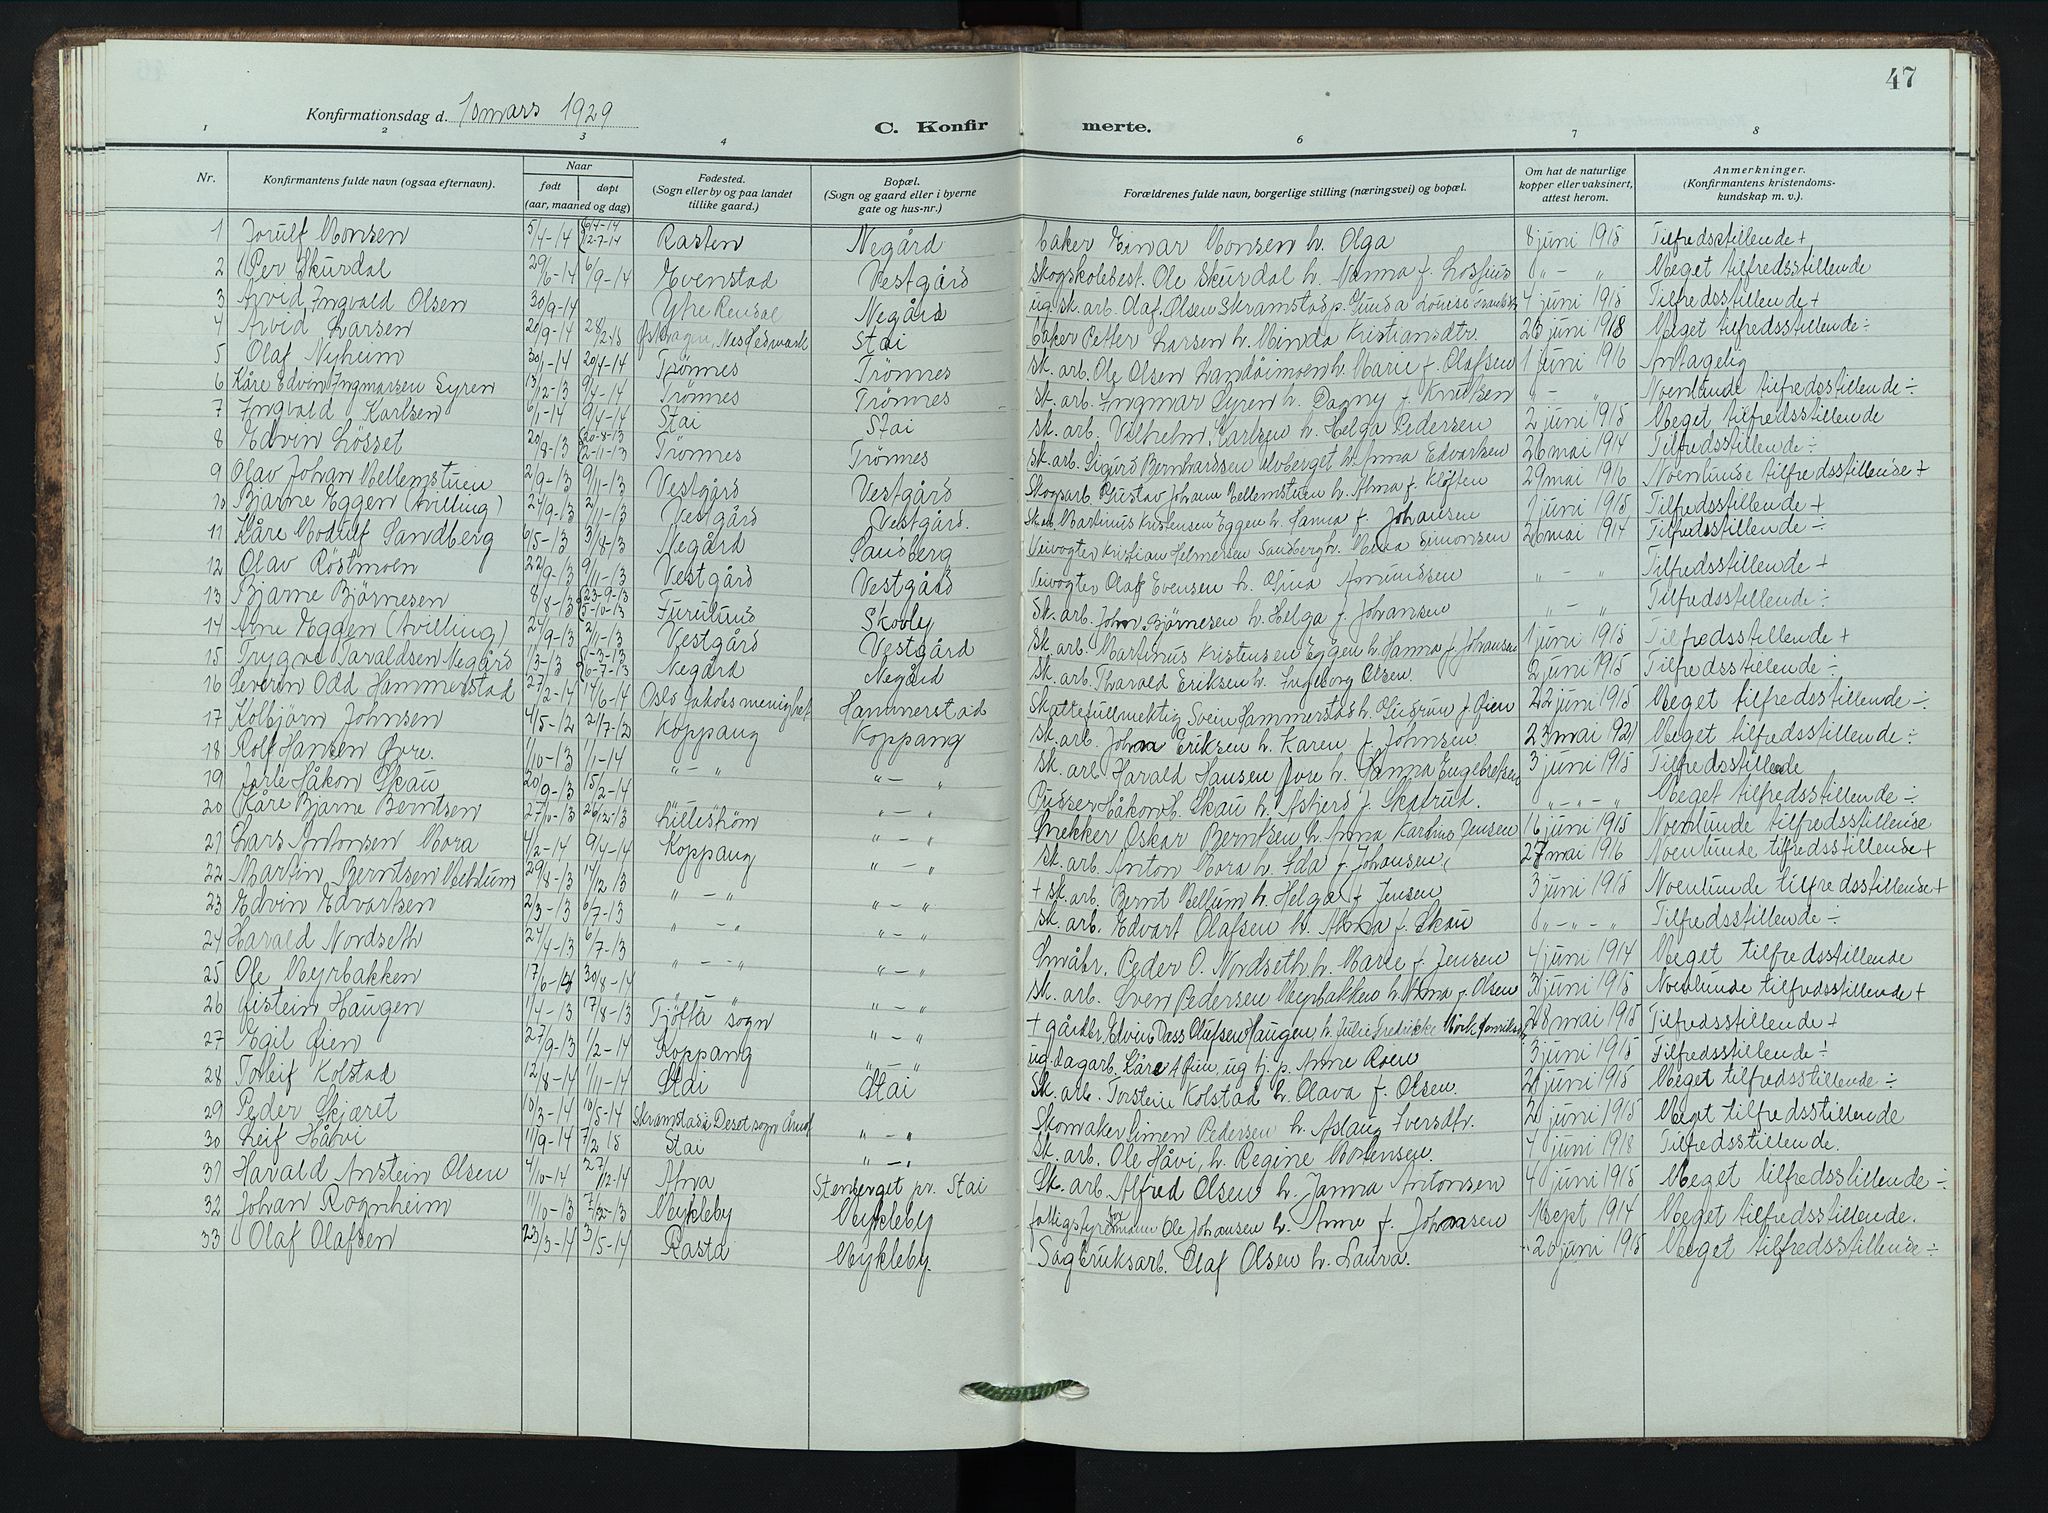 47
Konfirmationsdag d. 10 mars 1929
C. Konfirmerte.
1 2 3 4 5 6 7 8
Nr. | Konfirmantens fulde navn (ogsaa efternavn). | Naar født | døpt (aar, maaned og dag) | Fødested. (Sogn eller by og paa landet tillike gaard.) | Bopæl. (Sogn og gaard eller i byerne gate og hus-nr.) | Forældrenes fulde navn, borgerlige stilling (næringsvei) og bopæl. | Om hat de naturlige kopper eller vaksinert, attest herom. | Anmerkninger. (Konfirmantens kristendoms-kundskap m. v.).
1 Jorulf Monsen 5/4-14 Rasten Negård baker Einar Monsen h. Olga 8 juni 1915 Tilfredsstillende +
2 Per Skurdal 29/6-14 6/9-14 Evenstad Vestgård skogskolebest. Ole Skurdal h. Nanna f. Lossius " - " Meget tilfredsstillende
3 Arvid Ingvald Olsen 30/9-14 Ytre Rendal Negård ug. sk. arb. Olaf Olsen Skramstad p. Gunda Lovise 4 juni 1915 Tilfredsstillende +
4 Arvid Larsen 20/9-14 28/2-15 Nes Hedmark Stai baker Petter Larsen h. Minda Kristiansdtr. 26 juni 1918 Meget tilfredsstillende ÷
5 Olaf Nyheim 30/1-14 20/4-14 Trönnes Trönnes sk. arb. Ole Olsen h. Marie f. Olafsen 1 juni 1916 Antagelig
6 Kåre Edvin Ingmarsen Syren 13/12-13 9/4-14 Trönnes Trönnes sk. arb. Ingmar Syren h. Dagny f. Knudsen " - " Noenlunde tilfredsstillende ÷
7 Ingvald Karlsen 6/1-14 9/4-14 Stai Stai sk. arb. Vilhelm Karlsen h. Helga Pedersen 2 juni 1915 Meget tilfredsstillende
8 Edvin Lösset 20/8-13 20-8-13 2-11-13 Trönnes Trönnes sk. arb. Sigurd Bernhardsen Ulvberget h. Anna Edvartsen 26 mai 1914 Tilfredsstillende ÷
9 Olav Johan Mellemstuen 2/9-13 9/11-13 Vestgård Vestgård Skogsarb. Gustav Johann Mellemstuen h. Alma f. Klöften 29 mai 1916 Noenlunde tilfredsstillende +
10 Bjarne Eggen (tvilling) 24/9-13 2/11-13 Vestgård Vestgård. Sk. arb. Martinus Kristensen Eggen h. Hanna f. Johansen 1 juni 1915 Tilfredsstillende +
11 Kåre Modulf Sandberg 6/5-13 3/8-13 Negård Sandberg Veivogter Kristian Helmersen Sandberg h. Simonsen 26 mai 1914 Tilfredsstillende ÷
12 Olav Röstmoen 22/9-13 9/11-13 Vestgård Vestgård Veivogter Olaf Evensen h. Olina Amundsen " - " Tilfredsstillende +
13 Bjarne Björnesen 8/8-13 23-9-13 5-10-13 Furulund Skovly Sk. arb. John Björnesen h. Helga f. Johansen " - " Tilfredsstillende ÷
14 Arne Eggen (tvilling) 24/9-13 2/11-13 Vestgård Vestgård Sk. arb. Martinus Kristensen Eggen h. Hanna f. Johansen 1 juni 1915 Tilfredsstillende +
15 Trygve Taraldsen Negård 1/3-13 1-3-13 6-7-13 Negård Negård Sk. arb. Tharald Eriksen h. Ingeborg Olsen. 2 juni 1915 Tilfredsstillende ÷
16 Severin Odd Hammerstad 27/2-14 14/6-14 Oslo Jakobs menighet Hammerstad Skattefullmektig Svein Hammerstad h. Gudrun f. Öien 22 juni 1915 Meget tilfredsstillende ÷
17 Kolbjörn Johnsen 4/5-12 21/7-12 Koppang Koppang sk. arb. Johan Eriksen h. Karen f. Johnsen 23 mai 1921 Meget tilfredsstillende ÷
18 Rolf Hansen Övre. 11/10-13 1/1-14 " - " " - " sk. arb. Harald Hansen Övre h. Hanna Engebretsen 3 juni 1915 Tilfredsstillende
19 Jarle Håkon Skau 20/9-13 15/2-14 " - " Pudser Håkon H. Skau h. Asfjerd f. Skatrud. " - " - " Meget tilfredsstillende ÷
20 Kåre Bjarne Berntsen 27/10-13 26/12-13 Lilleström " - " Snekker Oskar Berntsen h. Anna Kartine Jensen 16 juni 1915 Noenlunde tilfredsstillende
21 Lars Antonsen Mora 4/2-14 9/4-14 Koppang " - " sk. arb. Anton Mora h. Ida f. Johansen. 27 mai 1916 Noenlunde tilfredsstillende +
22 Martin Berntsen Mehlum 29/8-13 14/12-13 " - " " - " + sk. arb. Bernt Mellum h. Helga f. Jensen 3 juni 1915 Noenlunde tilfredsstillende +
23 Edvin Edvartsen 2/3-13 6/7-13 " - " " - " sk. arb. Edvart Olafsen h. Anna f. Skau " - " - " Tilfredsstillende ÷
24 Harald Nordseth 24/4-13 6/7-13 " - " " - " Småbr. Peder O. Nordseth h. Marie f. Jensen 4 juni 1914 Meget tilfredsstillende
25 Ole Myrbakken 17/6-14 30/8-14 " " - " sk. arb. Sven Pedersen Myrbakken h. Anna f. Olsen 3 juni 1915 Noenlunde tilfredsstillende +
26 Eistein Haugen 1/4-13 17/8-13 Tjötta sogn " - " + gårdbr. Edvin Dass Olufsen Haugen h. Julie Fredrikke Mörk Henriksen 28 mai 1915 Tilfredsstillende +
27 Egil Öien 27/9-13 1/2-14 Koppang " - " ug. dagarb. Kåre A Öien, ug. tj. p. Anne Röen 3 juni 1915 Tilfredsstillende ÷
28 Torleif Kolstad 12/8-14 1/11-14 Stai Stai Sk. arb. Torstein Kolstad h. Olava f. Olsen. 21 juni 1915 Meget tilfredsstillende ÷
29 Peder Skjæret 10/3-14 10/5-14 Skramstad i Deset sogn Åmot " - " Skomaker Simen Pedersen h. Aslaug Iversdtr. 20 juni 1915 Meget tilfredsstillende
30 Leif Håvi 11/9-14 7/2 15 Stai " - " Sk. arb. Ole Håvi, h. Regine Mortensen. 4 juni 1918 Tilfredsstillende.
31 Harald Anstein Olsen 4/10-14 27/12-14 Atna Stenberget pr. Stai Sk. arb. Alfred Olsen h. Janna Antonsen 4 juni 1915 Meget tilfredsstillende ÷
32 Johan Rognheim 11/10-13 7/12-13 Mykleby Mykleby fattigstyreformann Ole Johansen h. Anne f. Johansen 1 sept 1914 Meget tilfredsstillende.
33 Olaf Olafsen 23/3-14 3/5-14 Rasta Mykleby. Sagbruksarb. Olaf Olsen h. Laura. 20 juni 1915 Meget tilfredsstillende ÷